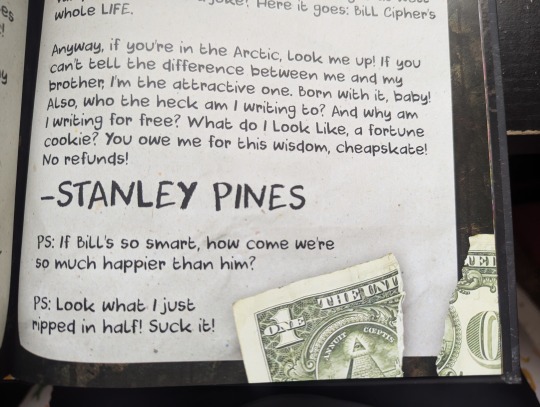 joke! Here it goes: Bill Cipher's
whole LIFE.
Anyway, if you're in the Arctic, look me up! If you
can't tell the difference between me and my
brother, I'm the attractive one. Born with it, baby!
Also, who the heck am I writing to? And why am
I writing for free? What do I look like, a fortune
cookie? You owe me for this wisdom, cheapskate!
No refunds!
-STANLEY PINES
PS: If Bill's so smart, how come we're
so much happier than him?
PS: Look what I just
ripped in half! Suck it!
THE UNIT
1
ONE
ANNUIT CŒPTIS